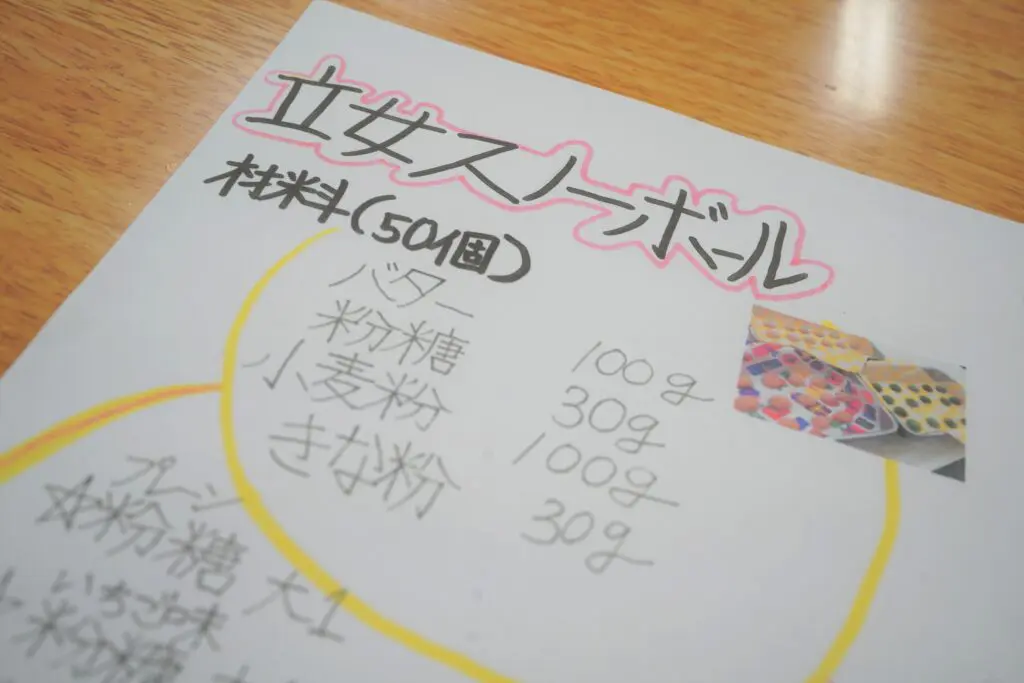 立女スノーボール
材料(50個)
バター 100g
粉糖 30g
小麦粉 100g
きな粉 30g
プレーン
☆粉糖 大1
いちご味
粉糖